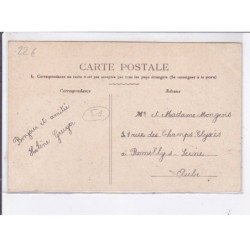 226
CARTE POSTALE
La Correspondance au recto n'est pas acceptée par tous les pays étrangers (Se renseigner à la poste)
Correspondance
Adresse
Bonjour et amitié
51
Mr et Madame Mongeois
rue des Champs Elysées
à Romilly s. Seine
Aube